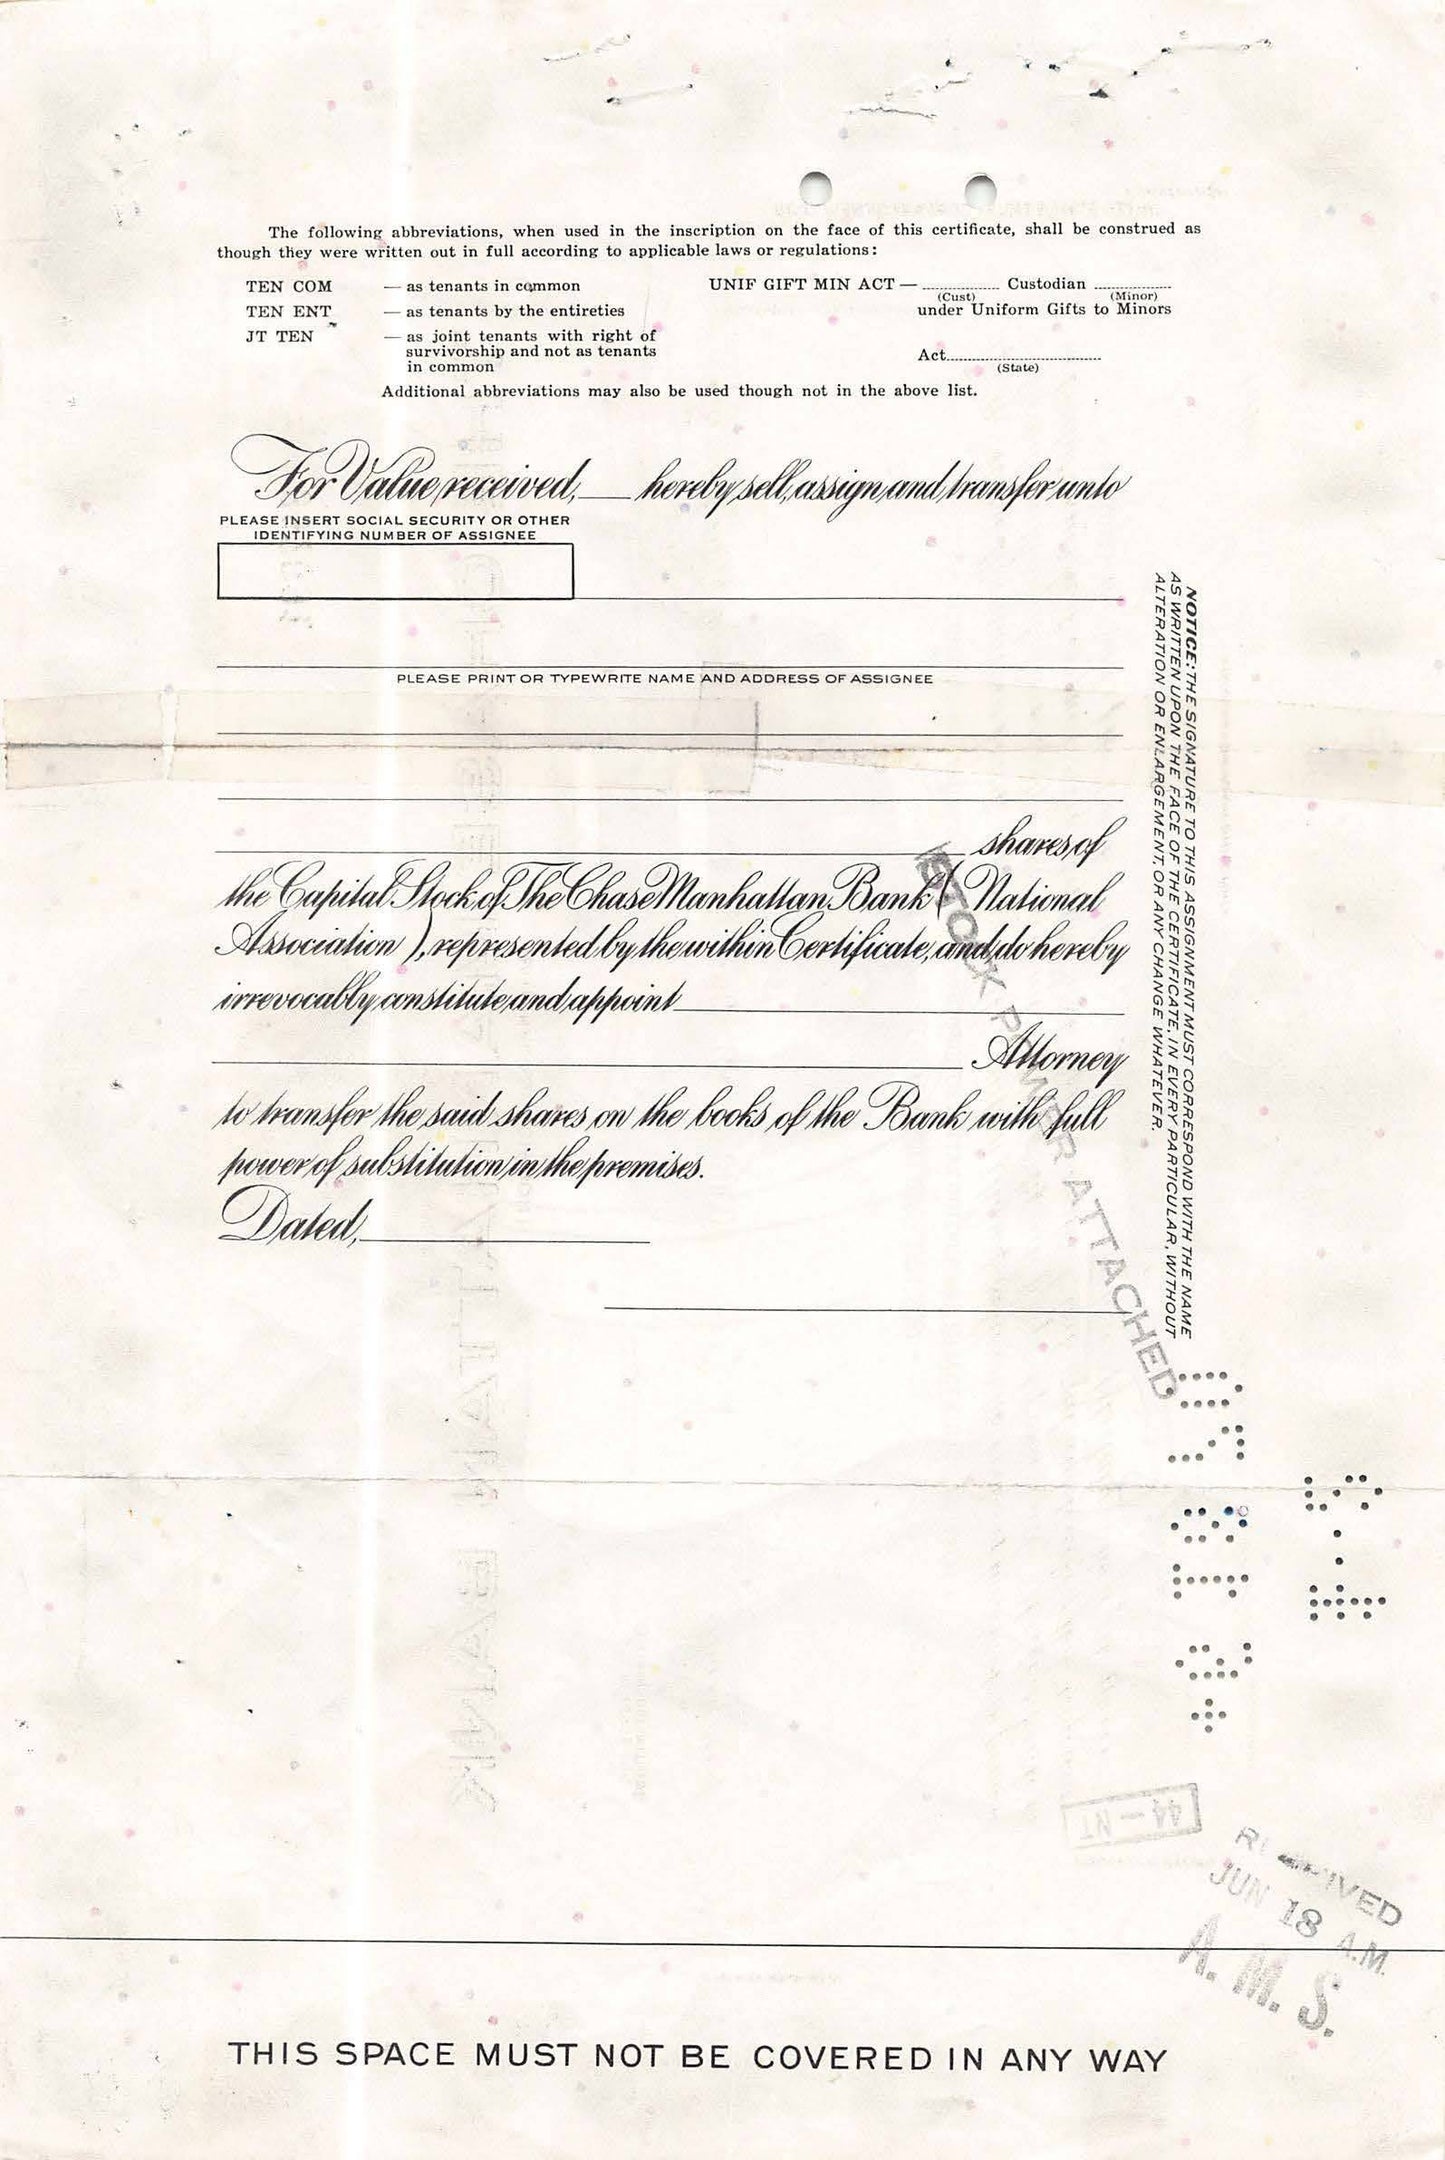 The following abbreviations, when used in the inscription on the face of this certificate, shall be construed as
though they were written out in full according to applicable laws or regulations:
TEN COM — as tenants in common
UNIF GIFT MIN ACT — Custodian
(Cust) (Minor)
TEN ENT — as tenants by the entireties
under Uniform Gifts to Minors
JT TEN — as joint tenants with right of
survivorship and not as tenants
in common
Act
(State)
Additional abbreviations may also be used though not in the above list.
For Value received, hereby sell, assign and transfer unto
PLEASE INSERT SOCIAL SECURITY OR OTHER
IDENTIFYING NUMBER OF ASSIGNEE
PLEASE PRINT OR TYPEWRITE NAME AND ADDRESS OF ASSIGNEE
shares of
the Capital Stock of The Chase Manhattan Bank (National
Association), represented by the within Certificate, and do hereby
irrevocably constitute and appoint
Attorney
to transfer the said shares on the books of the Bank with full
power of substitution in the premises.
Dated,
NOTICE: THE SIGNATURE TO THIS ASSIGNMENT MUST CORRESPOND WITH THE NAME
AS WRITTEN UPON THE FACE OF THE CERTIFICATE, IN EVERY PARTICULAR, WITHOUT
ALTERATION OR ENLARGEMENT, OR ANY CHANGE WHATEVER.
STOCK POWER ATTACHED
44-NT
RECEIVED
JUN 18 A.M.
A. M. S.
THIS SPACE MUST NOT BE COVERED IN ANY WAY